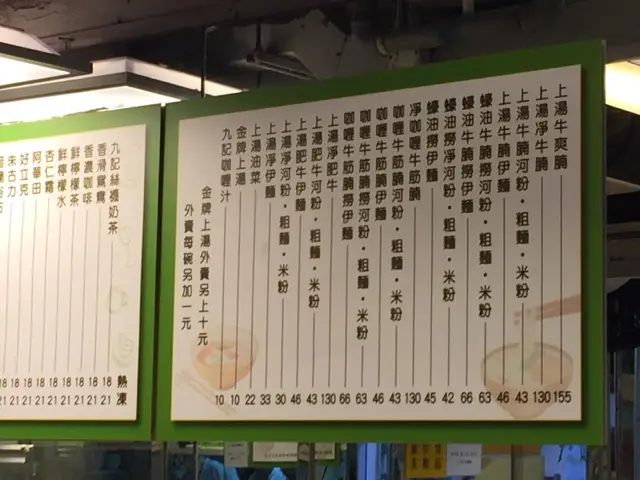 上湯牛爽腩 155
上湯淨牛腩 130
上湯牛腩河粉・粗麵・米粉 43
上湯牛腩伊麵 46
蠔油牛腩撈河粉・粗麵・米粉 63
蠔油牛腩撈伊麵 66
蠔油撈淨河粉・粗麵・米粉 42
蠔油撈伊麵 45
淨咖喱牛筋腩 130
咖喱牛筋腩河粉・粗麵・米粉 43
咖喱牛筋腩伊麵 46
咖喱牛筋腩撈河粉・粗麵・米粉 63
咖喱牛筋腩撈伊麵 66
上湯淨肥牛 130
上湯肥牛河粉・粗麵・米粉 43
上湯肥牛伊麵 46
上湯淨河粉・粗麵・米粉 30
上湯淨伊麵 33
上湯油菜 22
金牌上湯 10
九記咖喱汁 10
金牌上湯外賣另上十元
外賣每碗另加一元
熱 凍
九記絲襪奶茶 18 21
香滑鴛鴦 18 21
香濃咖啡 18 21
鮮檸檬茶 18 21
鮮檸檬水 18 21
杏仁霜 18 21
阿華田 18 21
好立克 18 21
朱古力 18 21